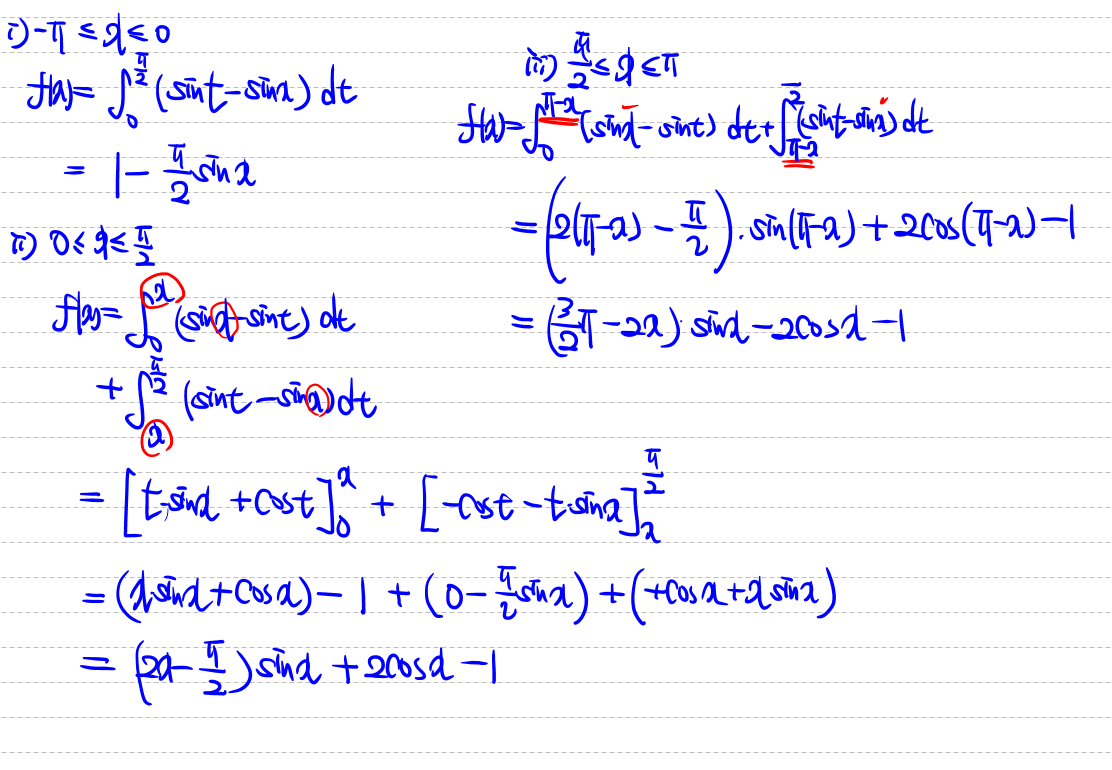 i) -π ≤ x ≤ 0
f(x) = ∫_0^{π/2} (sin t - sin x) dt
= 1 - π/2 sin x
ii) 0 ≤ x ≤ π/2
f(x) = ∫_0^x (sin x - sin t) dt
+ ∫_x^{π/2} (sin t - sin x) dt
= [t·sin x + cos t]_0^x + [-cos t - t·sin x]_x^{π/2}
= (x sin x + cos x) - 1 + (0 - π/2 sin x) + (+cos x + x sin x)
= (2x - π/2) sin x + 2cos x - 1
iii) π/2 ≤ x ≤ π
f(x) = ∫_0^{π-x} (sin x - sin t) dt + ∫_{π-x}^{π/2} (sin t - sin x) dt
= (2(π-x) - π/2)·sin(π-x) + 2cos(π-x) - 1
= (3/2 π - 2x) sin x - 2cos x - 1